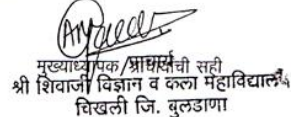 मुख्याध्यापक/प्राचार्याची सही
श्री शिवाजी विज्ञान व कला महाविद्यालय
चिखली जि. बुलडाणा